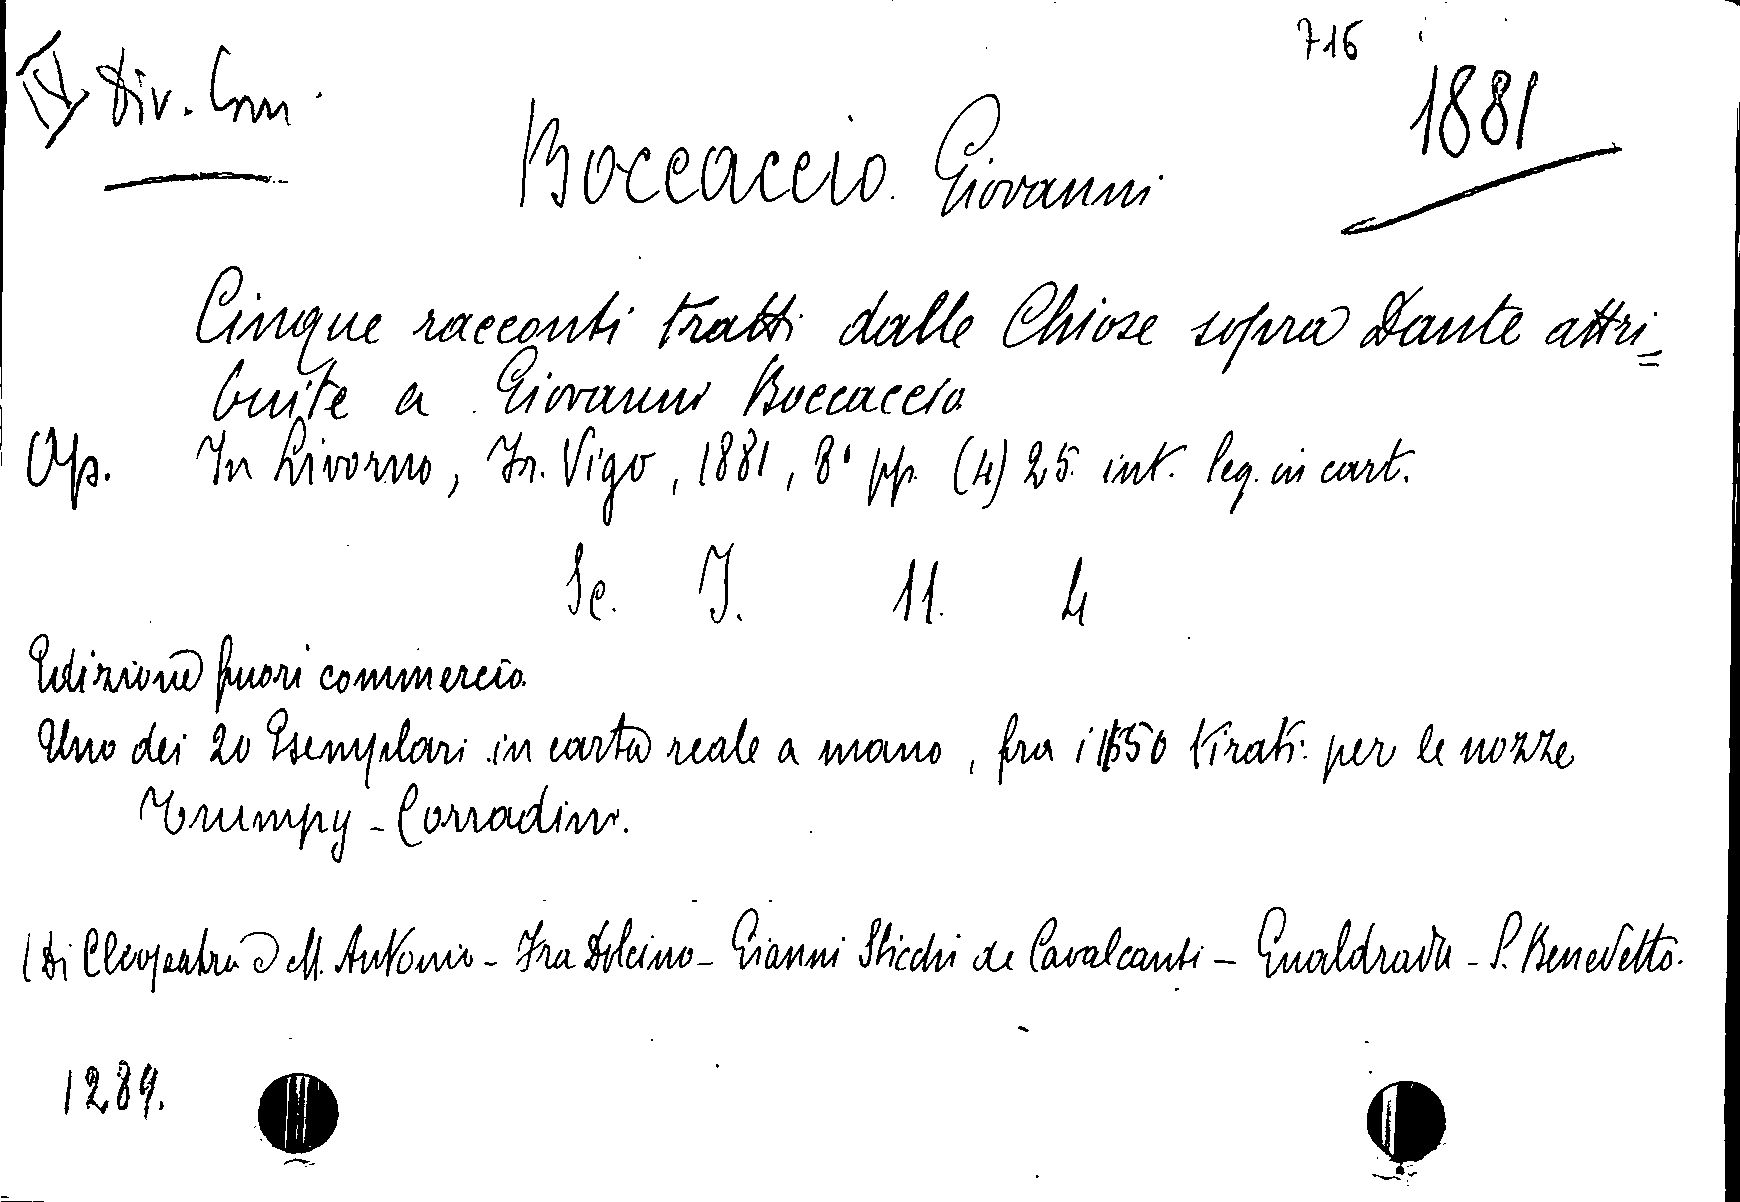 716
IV Div. Com.
1881
Boccaccio Giovanni
Cinque racconti tratti dalle Chiose sopra Dante attri=
buite a Giovanni Boccaccio
Op. In Livorno, Fr. Vigo, 1881, 8° pp. (4) 25. int. leg. in cart.
Sc. I. 11. 4
Edizione fuori commercio.
Uno dei 20 Esemplari in carta reale a mano, fra i 150 tirati per le nozze
Trumpy - Corradini.
(Di Cleopatra e M. Antonio - Fra Dolcino - Gianni Sticchi de Cavalcanti - Gualdrada - S. Benedetto.
1289.